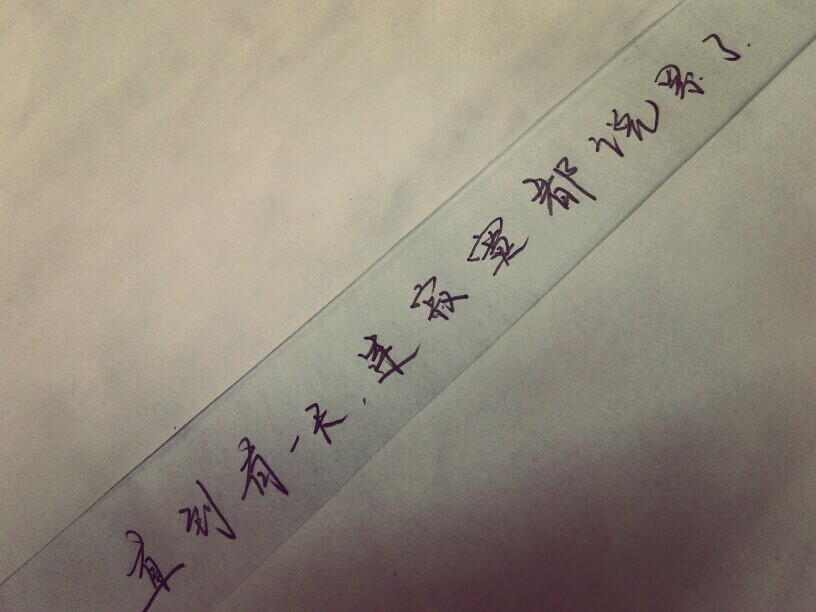 直到有一天,连寂寞都说累了.